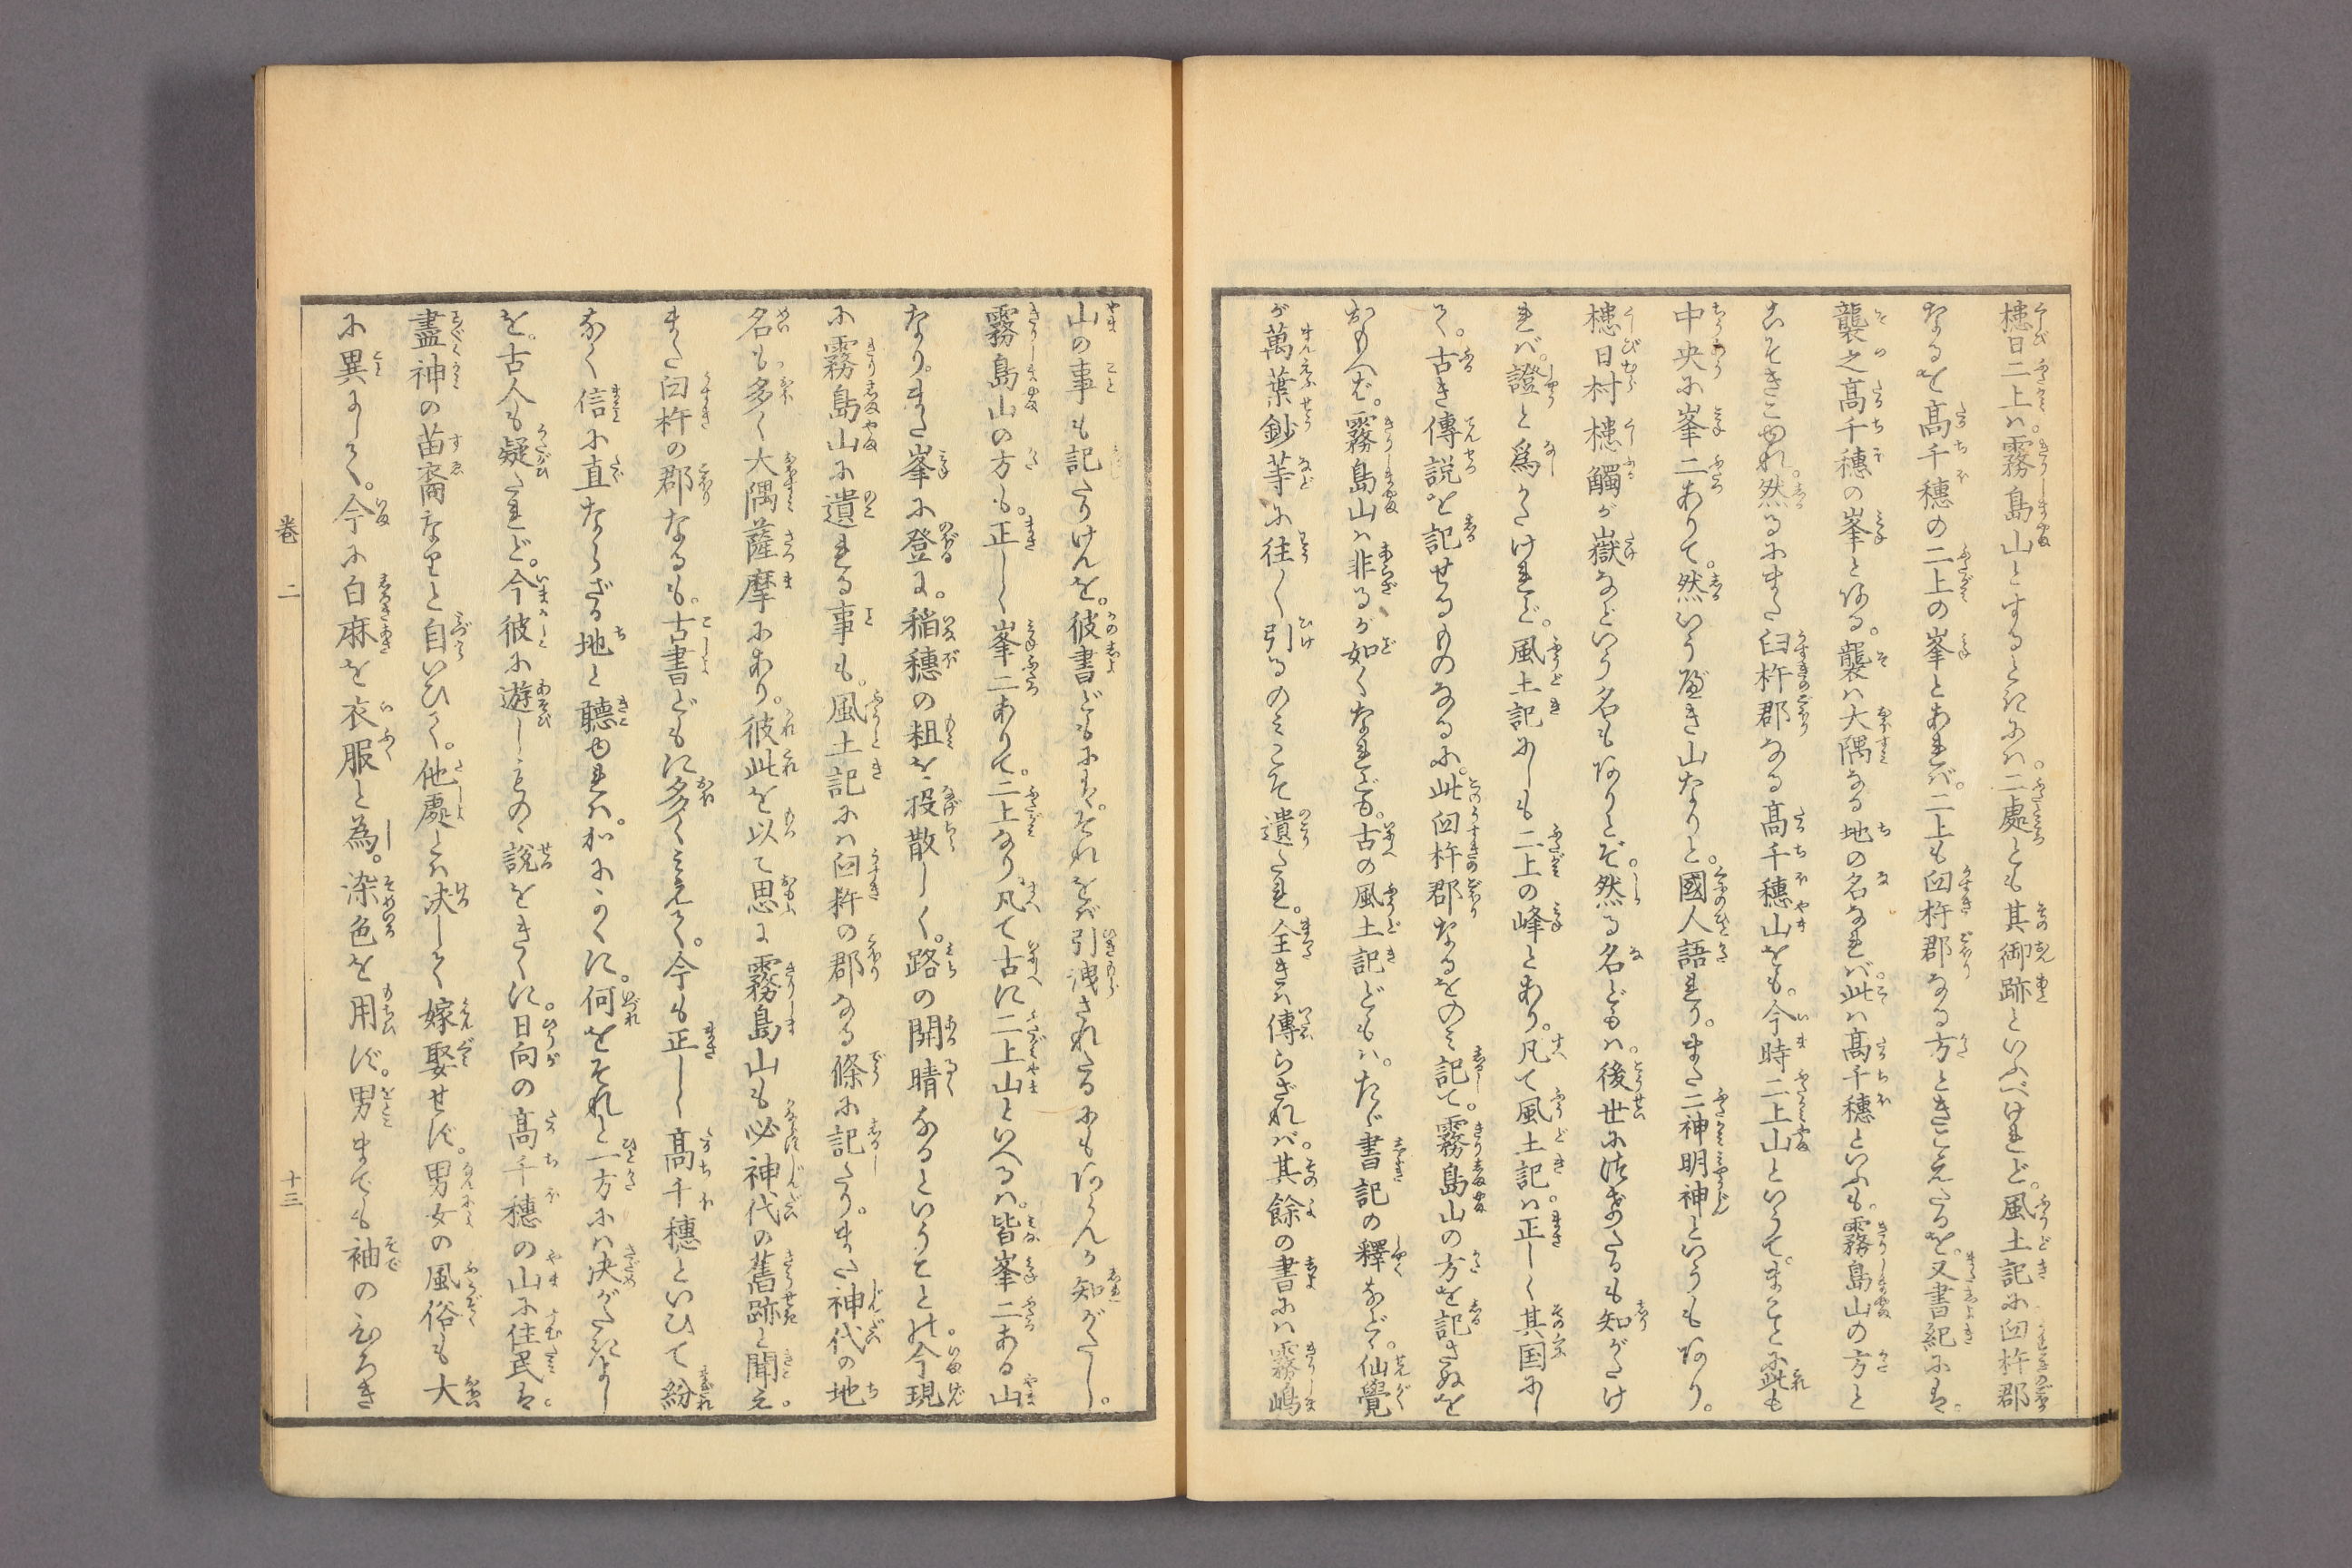 槵日二上ハ。霧島山とするときにハ。二處とも其御跡といふべけれど。風土記に臼杵郡
なるを高千穂の二上の峯とあれバ。二上も臼杵郡なる方ときこえたるを。又書紀にハ。
襲之高千穂の峯とある。襲ハ大隅なる地の名なれバ。此ハ高千穂といふも。霧島山の方と
こそきこゆれ。然るにまた臼杵郡なる高千穂山をも。今時二上山といひて。まことに此も
中央に峯二ありて。然いう可き山なりと。國人語れり。また二神明神というもあり。
槵日村槵觸が嶽などいう名もありとぞ。然る名どもハ。後世に負せたるも知がたけ
れバ。證と爲がたけれど。風土記にしも二上の峰とあり。凡て風土記ハ。正しく其国にし
て。古き傳説を記せるものなるに。此臼杵郡なるをのミ記て。霧島山の方を記さぬを
おもへバ。霧島山ハ非るが如くなれども。古の風土記どもハ。たゞ書記の釋など。仙覺
が萬葉鈔等に往〻引るのミこそ遺たれ。全きハ傳らざれバ。其餘の書にハ霧嶋
山の事も記たりけんを。彼書どもにハ。それをバ引洩されたるにもあらんか知がたし。
霧島山の方も。正しく峯二ありて。二上なり凡て古に二上山といへるハ。皆峯二ある山
なり。また峯に登に。稲穂の籾を投散しく。路の開晴なるということの。今現
に霧島山に遺れる事も。風土記にハ臼杵の郡なる條に記たり。また神代の地
名も多く大隅薩摩にあり。彼此を以て思に霧島山も必神代の舊跡と聞え。
また臼杵の郡なるも。古書どもに多くミえて。今も正しく高千穂といひて紛
なく信に直ならざる地と聽ゆれハ。かにかくに。何をそれと一方にハ決がたきよし
を。古人も疑たれど。今彼に遊しものゝ説をきくに。日向の高千穂の山に住民ハ。
盡神の苗裔なりと自いひて。他處とハ決して嫁娶せず。男女の風俗も大
に異にして。今に白麻を衣服と為。染色を用ず。男までも袖のひろき
卷二
十三